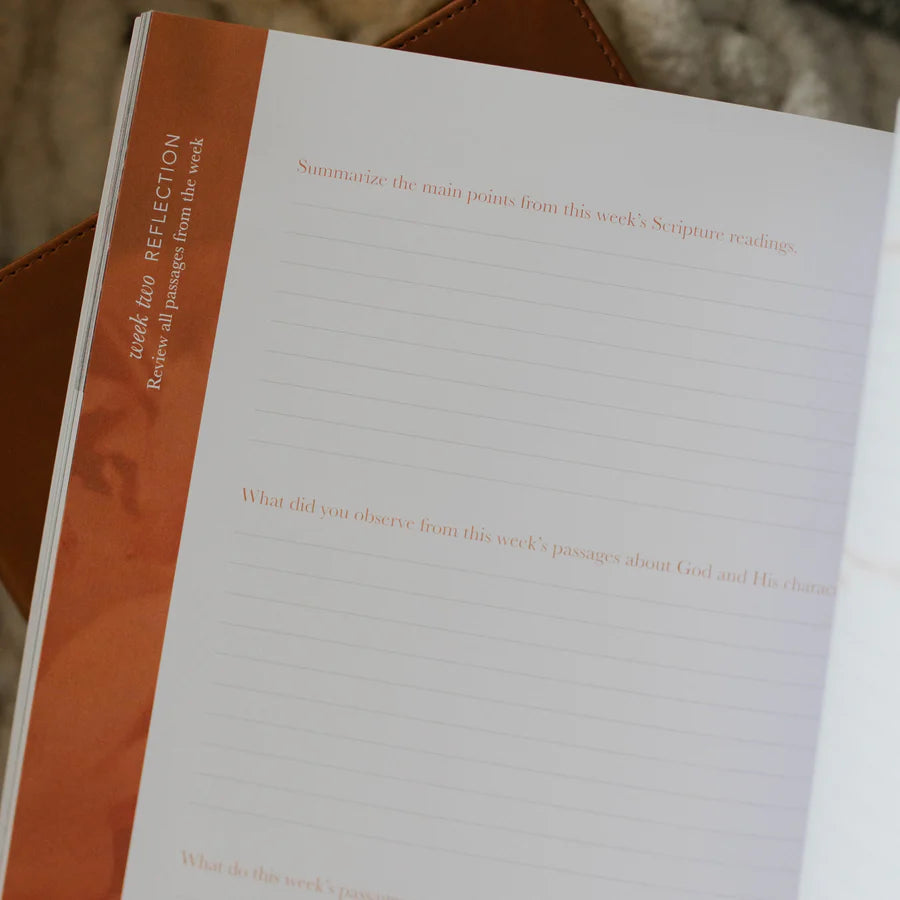 week two REFLECTION
Review all passages from the week
Summarize the main points from this week's Scripture readings.
What did you observe from this week's passages about God and His charac
What do this week's passag